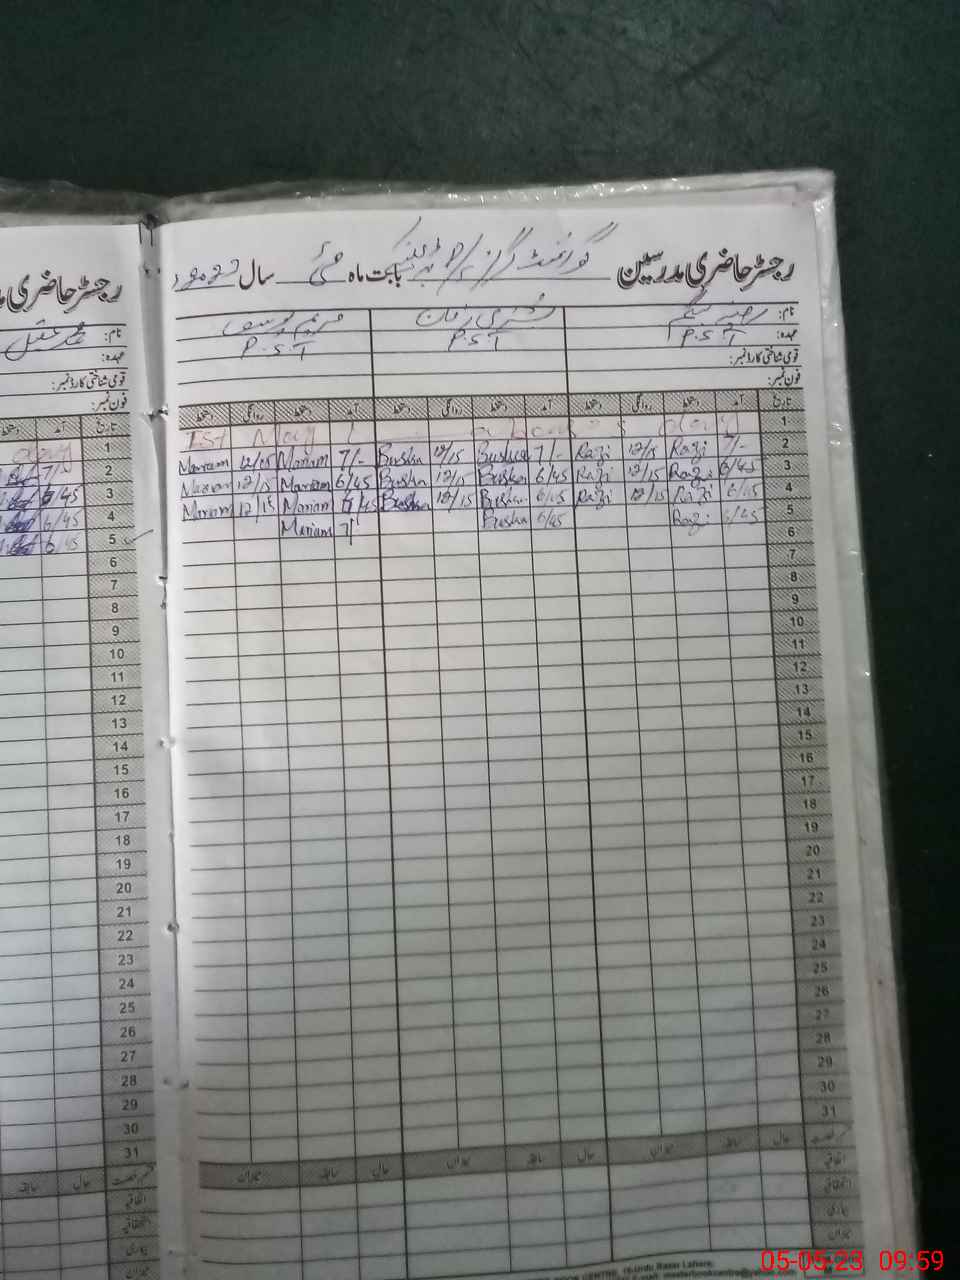 رجسٹر حاضری مدرسین گورنمنٹ گرلز بابت ماہ مئی سال
نام:
عہدہ: P.S.T P.S.T P.S.T
قومی شناختی کارڈ نمبر:
فون نمبر:
تاریخ آمد دستخط روانگی دستخط آمد دستخط روانگی دستخط آمد دستخط روانگی دستخط
1 1st May
2 7/- Razi 12/15 Razi 7/- Bushra 12/15 Bushra 7/- Mariam 12/15 Mariam
3 6/45 Razi 12/15 Razi 6/45 Bushra 12/15 Bushra 6/45 Mariam 12/15 Mariam
4 6/45 Razi 12/15 Razi 6/45 Bushra 12/15 Bushra 6/45 Mariam 12/15 Mariam
5 6/45 Razi 6/45 Bushra 7/ Mariam
6
7
8
9
10
11
12
13
14
15
16
17
18
19
20
21
22
23
24
25
26
27
28
29
30
31
حال سابقہ میزان حال سابقہ میزان حال سابقہ میزان
اتفاقیہ
استحقاقیہ
بیماری
میزان
رجسٹر حاضری
نام:
عہدہ:
قومی شناختی کارڈ نمبر:
فون نمبر:
تاریخ آمد دستخط
1
2 7/
3 6/45
4 6/45
5 6/45
6
7
8
9
10
11
12
13
14
15
16
17
18
19
20
21
22
23
24
25
26
27
28
29
30
31
حال سابقہ
اتفاقیہ
استحقاقیہ
بیماری
Urdu Bazar Lahore.
05-05-23 09:59